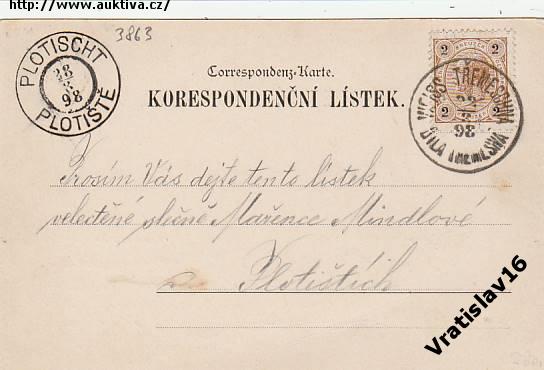 http://www.auktiva.cz/
3863
PLOTISCHT
23
3
98
PLOTIŠTĚ
2 KREUZER 2
2 2
TŘEMESCHNA
98
BÍLÁ TŘEMEŠNÁ
Correspondenz-Karte.
KORESPONDENČNÍ LÍSTEK.
Prosím Vás dejte tento lístek
velectěné slečně Mařence Mindlové
v Plotištích
Vratislav16